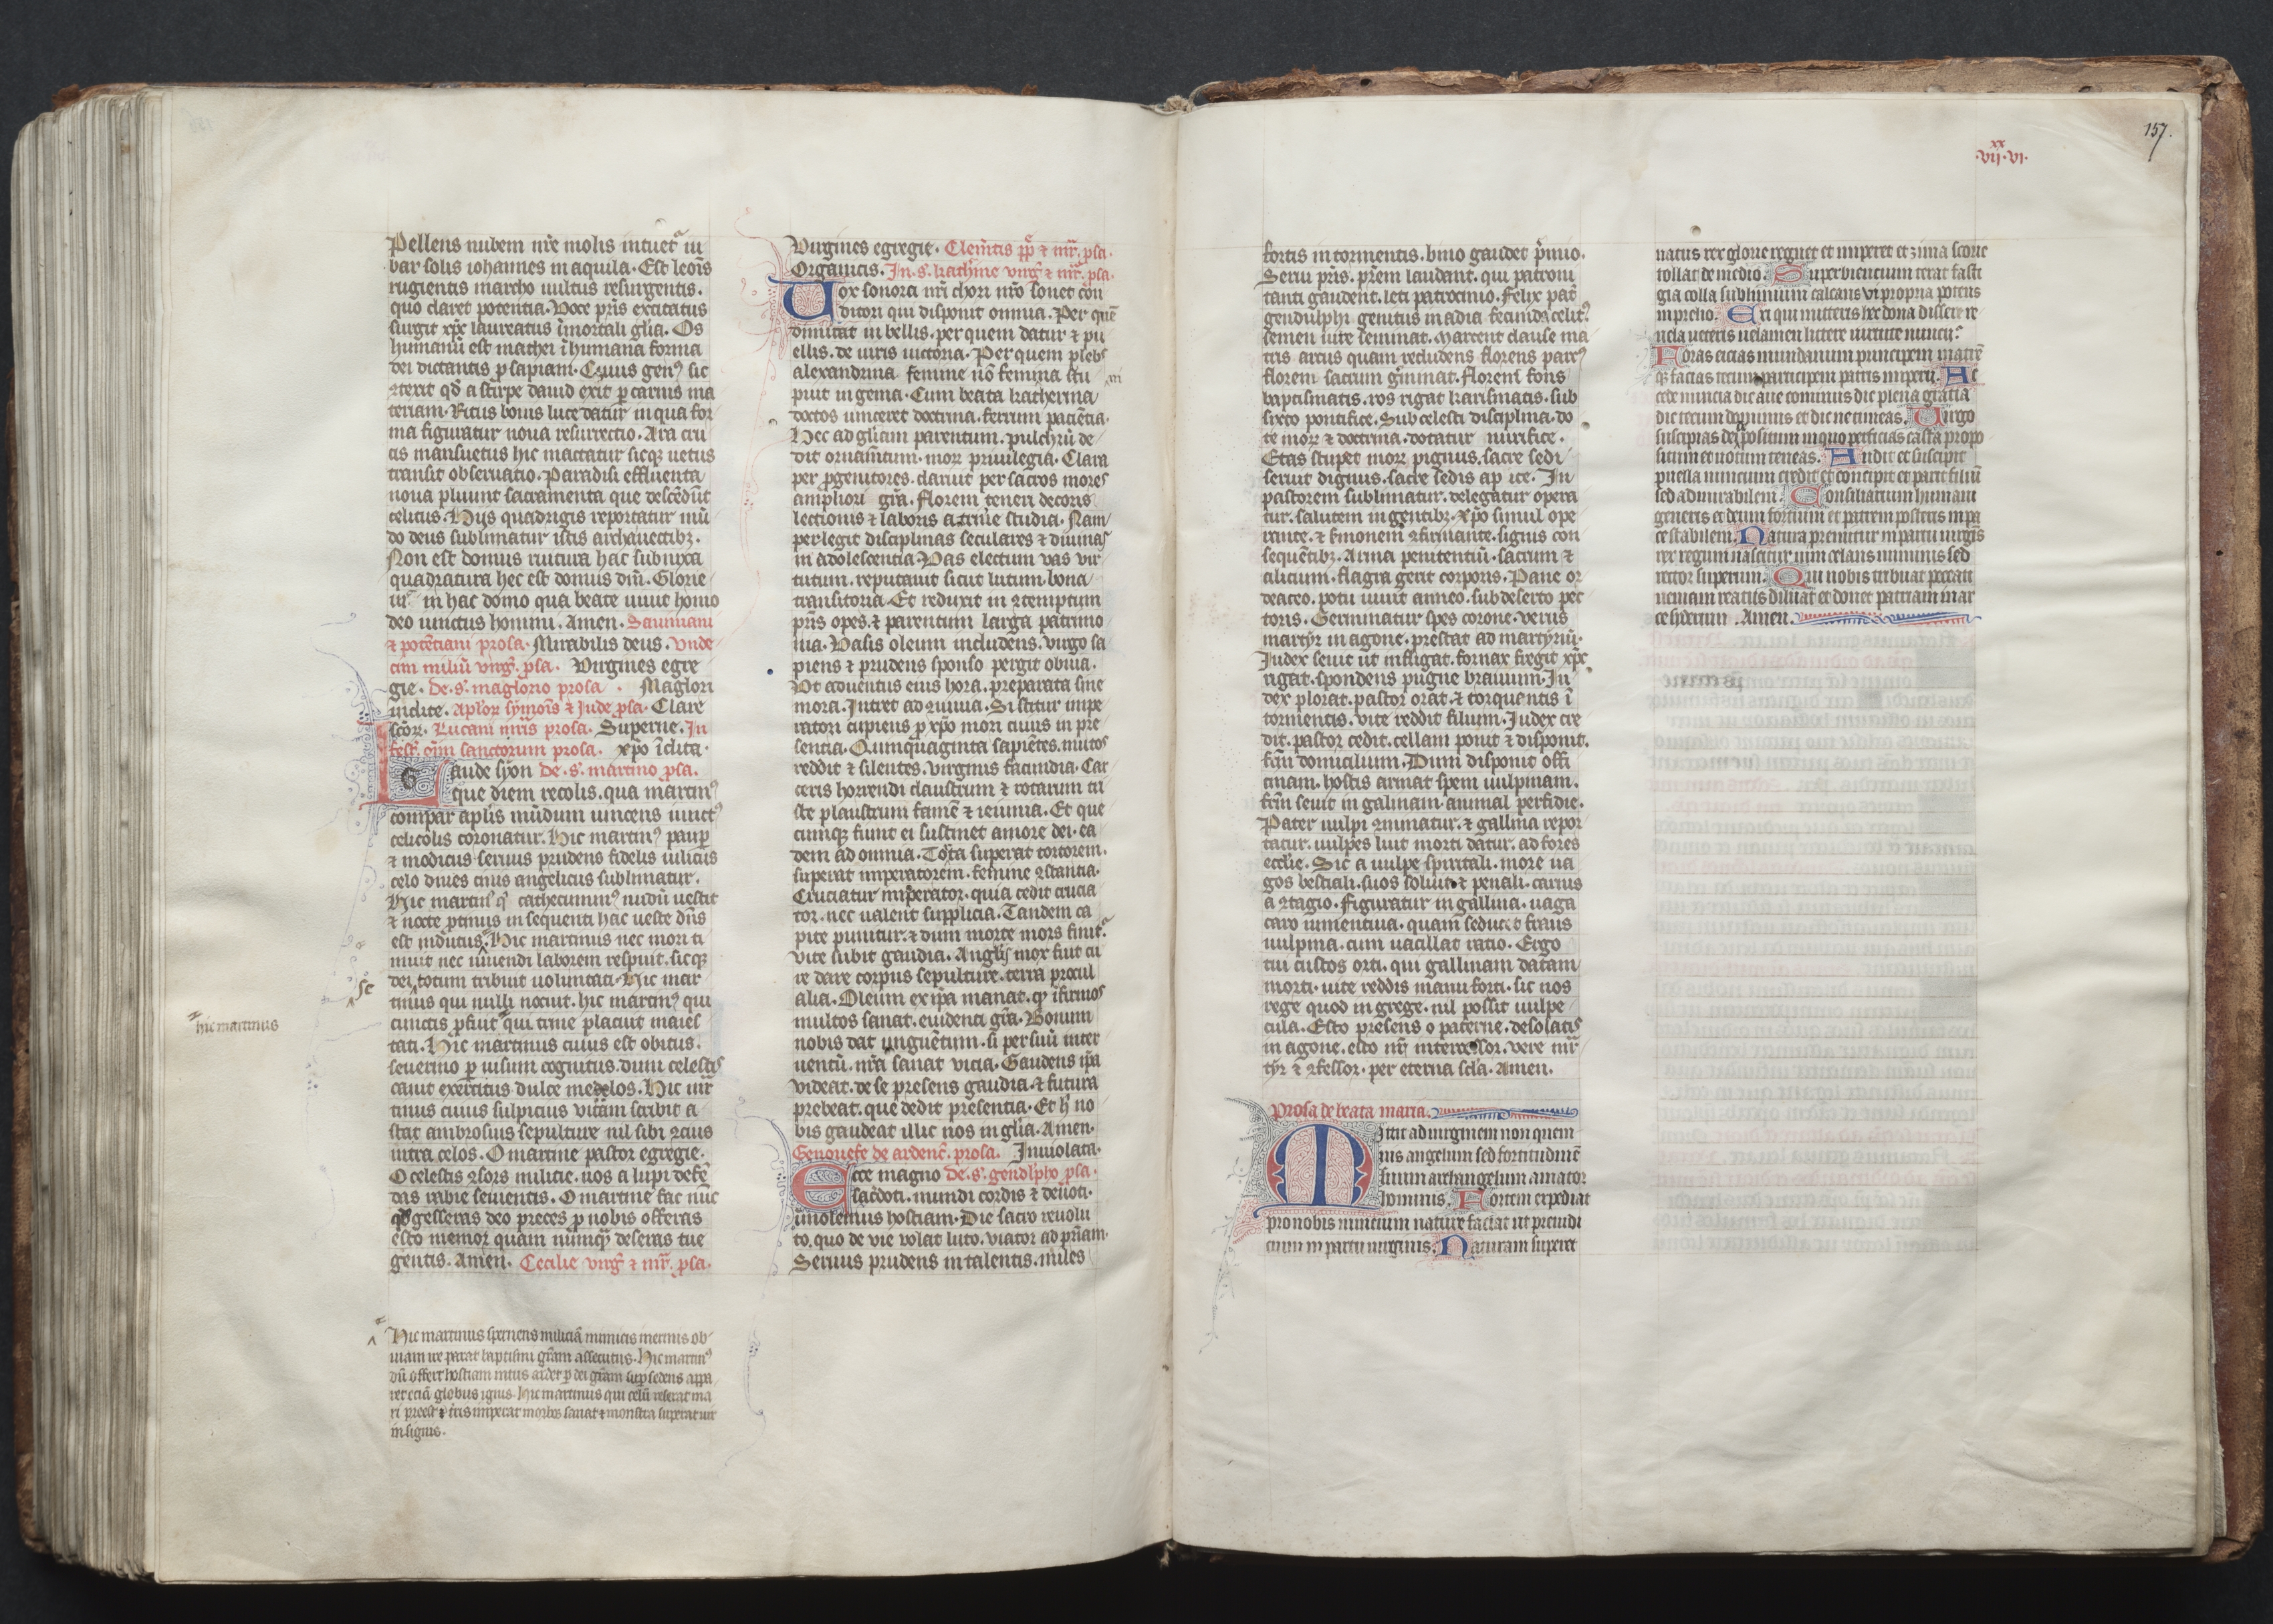 Pellens nubem nr̄e molis intuet᷑ iu
bar solis iohannes in aquila. Est leoīs
rugientis marcho uultus resurgentis.
quo claret potentia. Voce pr̄is excitatus
surgit xp̄c laureatus ī mortali gl̄ia. Os
humanū est mathei ī humana forma
dei dictantis ꝓsapiam. Cuius genꝰ sic
ꝯterit qd̄ a stirpe dauid exit ꝑ carnis ma
teriam. Ritus bouis luce datur in qua for
ma figuratur noua resurrectio. Ara cru
cis mansuetus hic mactatur sicqꝫ uetus
transit obseruatio. Paradisi effluenta
noua pluunt sacramenta que descēdūt
celitus. Hijs quadrigis reportatur mū
do deus sublimatur istis archauectibꝫ.
Non est domus ruitura hac subnixa
quadratura hec est domus dn̄i. Glorie
in hac domo qua beate uiuit homo
deo iunctus homini. Amen. Sauiniani
⁊ potēciani prosa. Mirabilis deus. Unde
cim miliū uirḡ. ꝓsa. Virgines egre
gie. de. s. maglorio prosa. Maglori
inclite. Ap̄lor̄ symoīs ⁊ iude ꝓsa. Clare
sc̄or̄. Lucani mr̄is prosa. Superne. In
fest̄. oīm sanctorum prosa. xp̄o īclita.
Laude syon de. s. martino ꝓsa.
que diem recolis. qua martinꝰ
compar ap̄lis mūdum uincens iunctꝰ
celicolis coronatur. Hic martinꝰ pauꝑ
⁊ modicus seruus prudens fidelis uilicus
celo diues ciuis angelicus sublimatur.
Hic martinꝰ qͥ cathecuminꝰ nudū uestit
⁊ nocte ꝓtinus in sequenti hac ueste dn̄s
est indutus. Hic martinus nec mori ti
muit nec uiuendi laborem respuit. sicqꝫ
dei totum tribuit uoluntati. Hic mar
se
tinus qui nulli nocuit. hic martinꝰ qui
cunctis ꝓfuit qui trine placuit maies
hic martinus
tati. Hic martinus cuius est obitus.
seuerino ꝑ uisum cognitus. dum celestis
canit exercitus dulce medelos. Hic mr̄
tinus cuius sulpicius uitam scribit a
stat ambrosius sepulture nil sibi ꝯcius
intra celos. O martine pastor egregie.
O celestis ꝯsors militie. nos a lupi defē
das rabie seuientis. O martine fac nūc
qd̄ gesseras deo preces ꝓ nobis offeras
esto memor quam nūmqꝫ deseras tue
gentis. Amen. Cecilie uirḡ ⁊ mr̄. ꝓsa.
Hic martinus spernens miliciā inimicis inermis ob
uiam ire parat baptismi gr̄am assecutus. Hic martinꝰ
dū offert hostiam intus ardet ꝑ dei gr̄am suꝑ sedens appa
ret eciā globus ignis. Hic martinus qui celū reserat ma
ri preest ⁊ t̄ris imperat morbos sanat ⁊ monstra superat uir
insignis.
Virgines egregie. Clemētis pp̄ ⁊ mr̄. ꝓsa.
Organicis. In. s. kath̄ine uirḡ ⁊ mr̄. ꝓsa.
Vox sonora nr̄i chori nr̄o sonet con
ditori qui disponit omnia. Per quē
dimicat in bellis. per quem datur ⁊ pu
ellis. de uiris uictoria. Per quem plebs
alexandrina femine nō femina stu
puit ingenia. Cum beata katherina
doctos uinceret doctrina. ferrum paciētia.
Hec ad gl̄iam parentum. pulchrū de
dit ornam̄tum. mor̄ priuilegia. Clara
per ꝓgenitores. claruit per sacros mores
ampliori gr̄a. Florem teneri decoris
lectionis ⁊ laboris attriuere studia. Nam
perlegit disciplinas seculares ⁊ diuinas
in adolescentia. Vas electum vas vir
tutum. reputauit sicut lutum. bona
transitoria. Et reduxit in ꝯtemptum
pr̄is opes. ⁊ parentum larga patrimo
nia. Vasis oleum includens. virgo sa
piens ⁊ prudens sponso pergit obuia.
Vt aduentus eius hora. preparata sine
mora. Intret ad ꝯuiuia. Sistitur impe
ratori cupiens ꝓ xp̄o mori cuius in pre
sentia. Quinquaginta sapiētes. mutos
reddit ⁊ silentes. virginis facundia. Car
ceris horrendi claustrum ⁊ rotarum tri
ste plaustrum famē ⁊ ieiunia. Et que
cumqꝫ fiunt ei sustinet amore dei. ea
dem ad omnia. Torta superat tortorem.
superat imperatorem. femine ꝯstantia.
Cruciatur imperator. quia cedit crucia
tor. nec ualent supplicia. Tandem ca
pite punitur. ⁊ dum morte mors finit᷑.
vite subit gaudia. Angl̄is mox fuit cu
re dare corpus sepulture. terra procul
alia. Oleum ex ip̄a manat. qͥ īfirmos
multos sanat. euidenti gr̄a. Bonum
nobis dat unguētum. si per suū inter
uentū. nr̄a sanat uicia. Gaudens ip̄a
videat. de se presens gaudia. ⁊ futura
prebeat. que dedit presentia. Et hͥ no
bis gaudeat illic nos in gl̄ia. Amen.
Genouefe de ardent̄. prosa. Inuiolata.
Ecce magno de. s. gendlpho ꝓsa.
sac̄doti. mundi cordis ⁊ deuoti.
imolemus hostiam. Die sacro reuolu
to. quo de vie volat luto. viator ad pr̄iam.
Seruus prudens in talentis. miles
157.
xx
.vij.vi.
fortis in tormentis. bino gaudet p̄mio.
Serui pr̄is. pr̄em laudant. qui patroni
tanti gaudent. leti patrocinio. Felix pat̄
gendulphi genitus in adia fecunda celitꝰ.
semen uite seminat. Marcent clause ma
tris artus quam recludens florens partꝰ
florem sacrum ḡminat. Florem fons
baptismatis. ros rigat karismatis. sub
sixto pontifice. Sub celesti disciplina. do
te mor̄ ⁊ doctrina. dotatur mirifice.
Etas stupet mor̄ pignus. sacre sedi
seruit dignus. sacre sedis apice. In
pastorem sublimatur. delegatur opera
tur. salutem in gentibꝫ. xp̄o simul ope
rante. ⁊ sermonem ꝯfirmante. signis con
sequētibꝫ. Arma penitentiū. sacrum ⁊
cilicium. flagra gerit corporis. Pane or
deaceo. potu uiuit amneo. sub deserto pec
toris. Germinatur spes corone. verus
martyr in agone. prestat ad martyriū.
Judex seuit ut infligat. fornax fregit xp̄c
rigat. spondens pugne brauium. Ju
dex plorat. pastor orat. ⁊ torquentis ī
tormentis. vite reddit filium. Judex cre
dit. pastor cedit. cellam ponit ⁊ disponit.
fr̄m domicilium. Dum disponit offi
cinam. hostis armat spem uulpinam.
fr̄m seuit in galinam. animal perfidie.
Pater uulpi ꝯminatur. ⁊ gallina repor
tatur. uulpes luit morti datur. ad fores
eccl̄ie. Sic a uulpe spiritali. more ua
gos bestiali. suos soluit ⁊ penali. carnis
a ꝯtagio. Figuratur in gallina. uaga
caro iumentina. quam seducit fraus
uulpina. cum uacillat ratio. Ergo
tui custos orti. qui gallinam datam
morti. uite reddis manu forti. sic nos
rege quod in grege. nil possit uulpe
cula. Esto presens o paterne. desolatis
in agone. esto nr̄ intercessor. vere mr̄
tyr ⁊ ꝯfessor. per eterna sc̄la. Amen.
Prosa de beata maria.
Mitit ad uirginem non quem
uis angelum sed fortitudinē
suum archangelum amator
hominis. Fortem expediat
pro nobis nuncium nature faciat ut preiudi
cium in partu uirginis. Naturam superet
natus rex glorie regnet et imperet et zima scorie
tollat de medio. Superbiencium terat fasti
gia colla sublimium calcans vi propria potens
in prelio. Foras eiciat mundanum principem matrē
qꝫ faciat secum participem patris imperii. Exi qui mitteris hec dona dissere re
uela ueteris uelamen littere uirtute nuncii.
Accede nuncia dic aue cominus dic plena gratia
dic tecum dominus et dic ne timeas. Uirgo
suscipias depositum in quo perficias casta propo
situm et uotum teneas. Audit et suscipit
puella nuncium credit et concipit et parit filiū
sed admirabilem. Consiliarium humani
generis et deum fortium et patrem posteris in pa
ce stabilem. Natura premitur in partu uirgīs
rex regum nascitur uim celans numinis sed
rector superum. Qui nobis tribuat peccati
ueniam reatus diluat et donet patriam in ar
ce syderum. Amen.